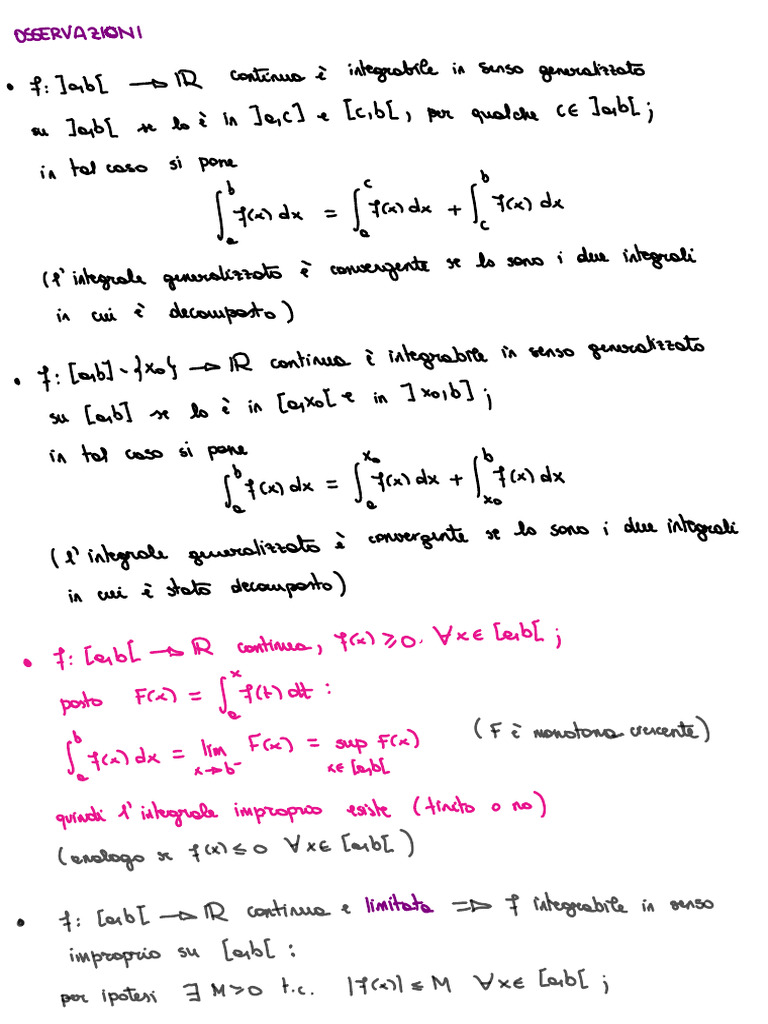 OSSERVAZIONI
• f: ]a,b[ → ℝ continua è integrabile in senso generalizzato
su ]a,b[ se lo è in ]a,c] e [c,b[, per qualche c∈ ]a,b[ ;
in tal caso si pone
∫_a^b f(x) dx = ∫_a^c f(x) dx + ∫_c^b f(x) dx
(l'integrale generalizzato è convergente se lo sono i due integrali
in cui è decomposto)
• f: [a,b] \ {x₀} → ℝ continua è integrabile in senso generalizzato
su [a,b] se lo è in [a,x₀[ e in ]x₀,b] ;
in tal caso si pone
∫_a^b f(x) dx = ∫_a^{x₀} f(x) dx + ∫_{x₀}^b f(x) dx
(l'integrale generalizzato è convergente se lo sono i due integrali
in cui è stato decomposto)
• f: [a,b[ → ℝ continua, f(x) ≥ 0. ∀x∈ [a,b[ ;
posto F(x) = ∫_a^x f(t) dt :
∫_a^b f(x) dx = lim_{x→b⁻} F(x) = sup_{x∈[a,b[} F(x) (F è monotona crescente)
quindi l'integrale improprio esiste (finito o no)
(analogo se f(x) ≤ 0 ∀x∈ [a,b[ )
• f: [a,b[ → ℝ continua e limitata ⇒ f integrabile in senso
improprio su [a,b[ :
per ipotesi ∃ M>0 t.c. |f(x)| ≤ M ∀x∈ [a,b[ ;